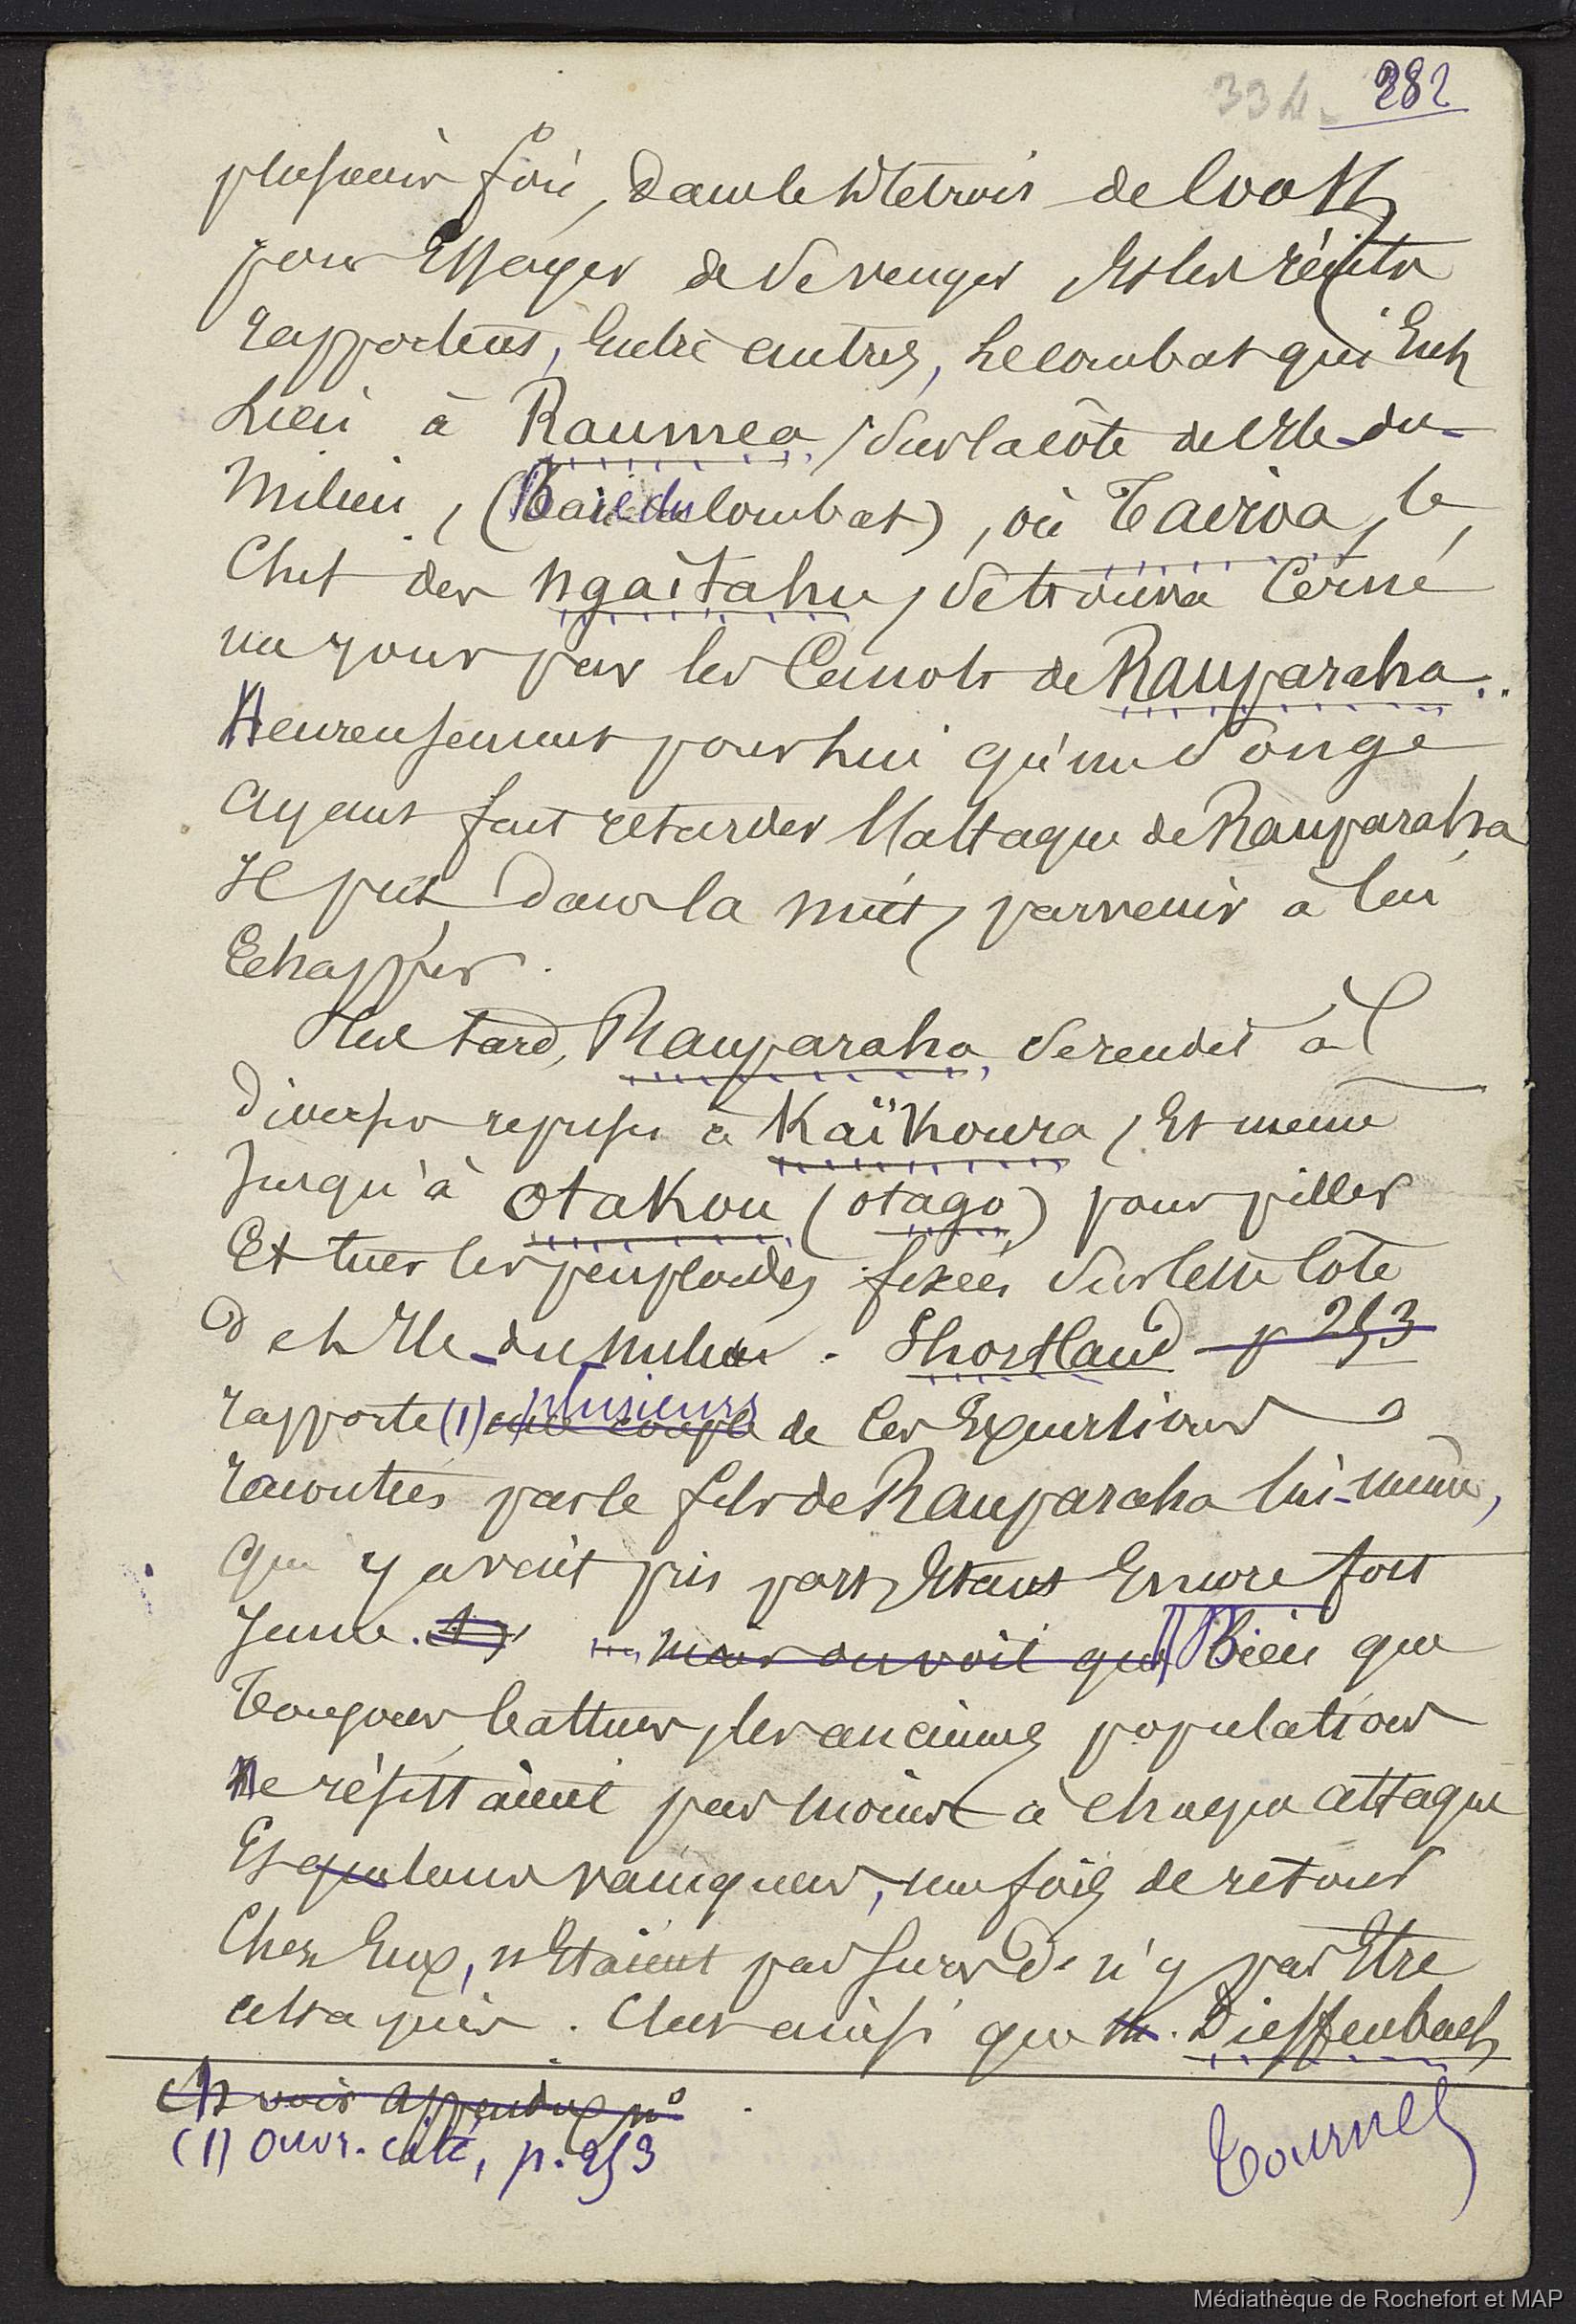 334. 282
plusieurs fois, dans le détroit de Cook
pour Essayer de se venger Et les récits
rapportent, Entre autres, le combat qui Eut
lieu à Raumea, sur la côte de l'Ile-du-
Milieu, (Baie du Combat), où Tairoa, le
Chef des Ngaïtahu, se trouva Cerné
un jour par les Canots de Rauparaha..
Heureusement pour lui qu'un songe
Ayant fait retarder l'attaque de Rauparaha
Il put dans la nuit, parvenir à lui
Echapper.
Plus tard, Rauparaha se rendit à
diverses reprises à Kaïkoura, Et même
Jusqu'à Otakou (Otago) pour piller
Et tuer les peuplades fixées sur cette côte
de l'Ile-du-Milieu. Shortland p 253
rapporte (1) une couple plusieurs de ces Excursions
racontées par le fils de Rauparaha lui-même,
qui y avait pris part Etant Encore fort
Jeune. (1) mais on voit que Bien que
Toujours battues, les anciennes populations
ne résistaient pas moins à chaque attaque
Et que leurs vainqueurs, une fois de retour
Chez Eux, n'Etaient pas surs de n'y pas Etre
attaqués. C'est ainsi que M. Dieffenbach
(1) voir appendix no
(1) Ouvr. cité, p. 253
Tournez
Médiathèque de Rochefort et MAP